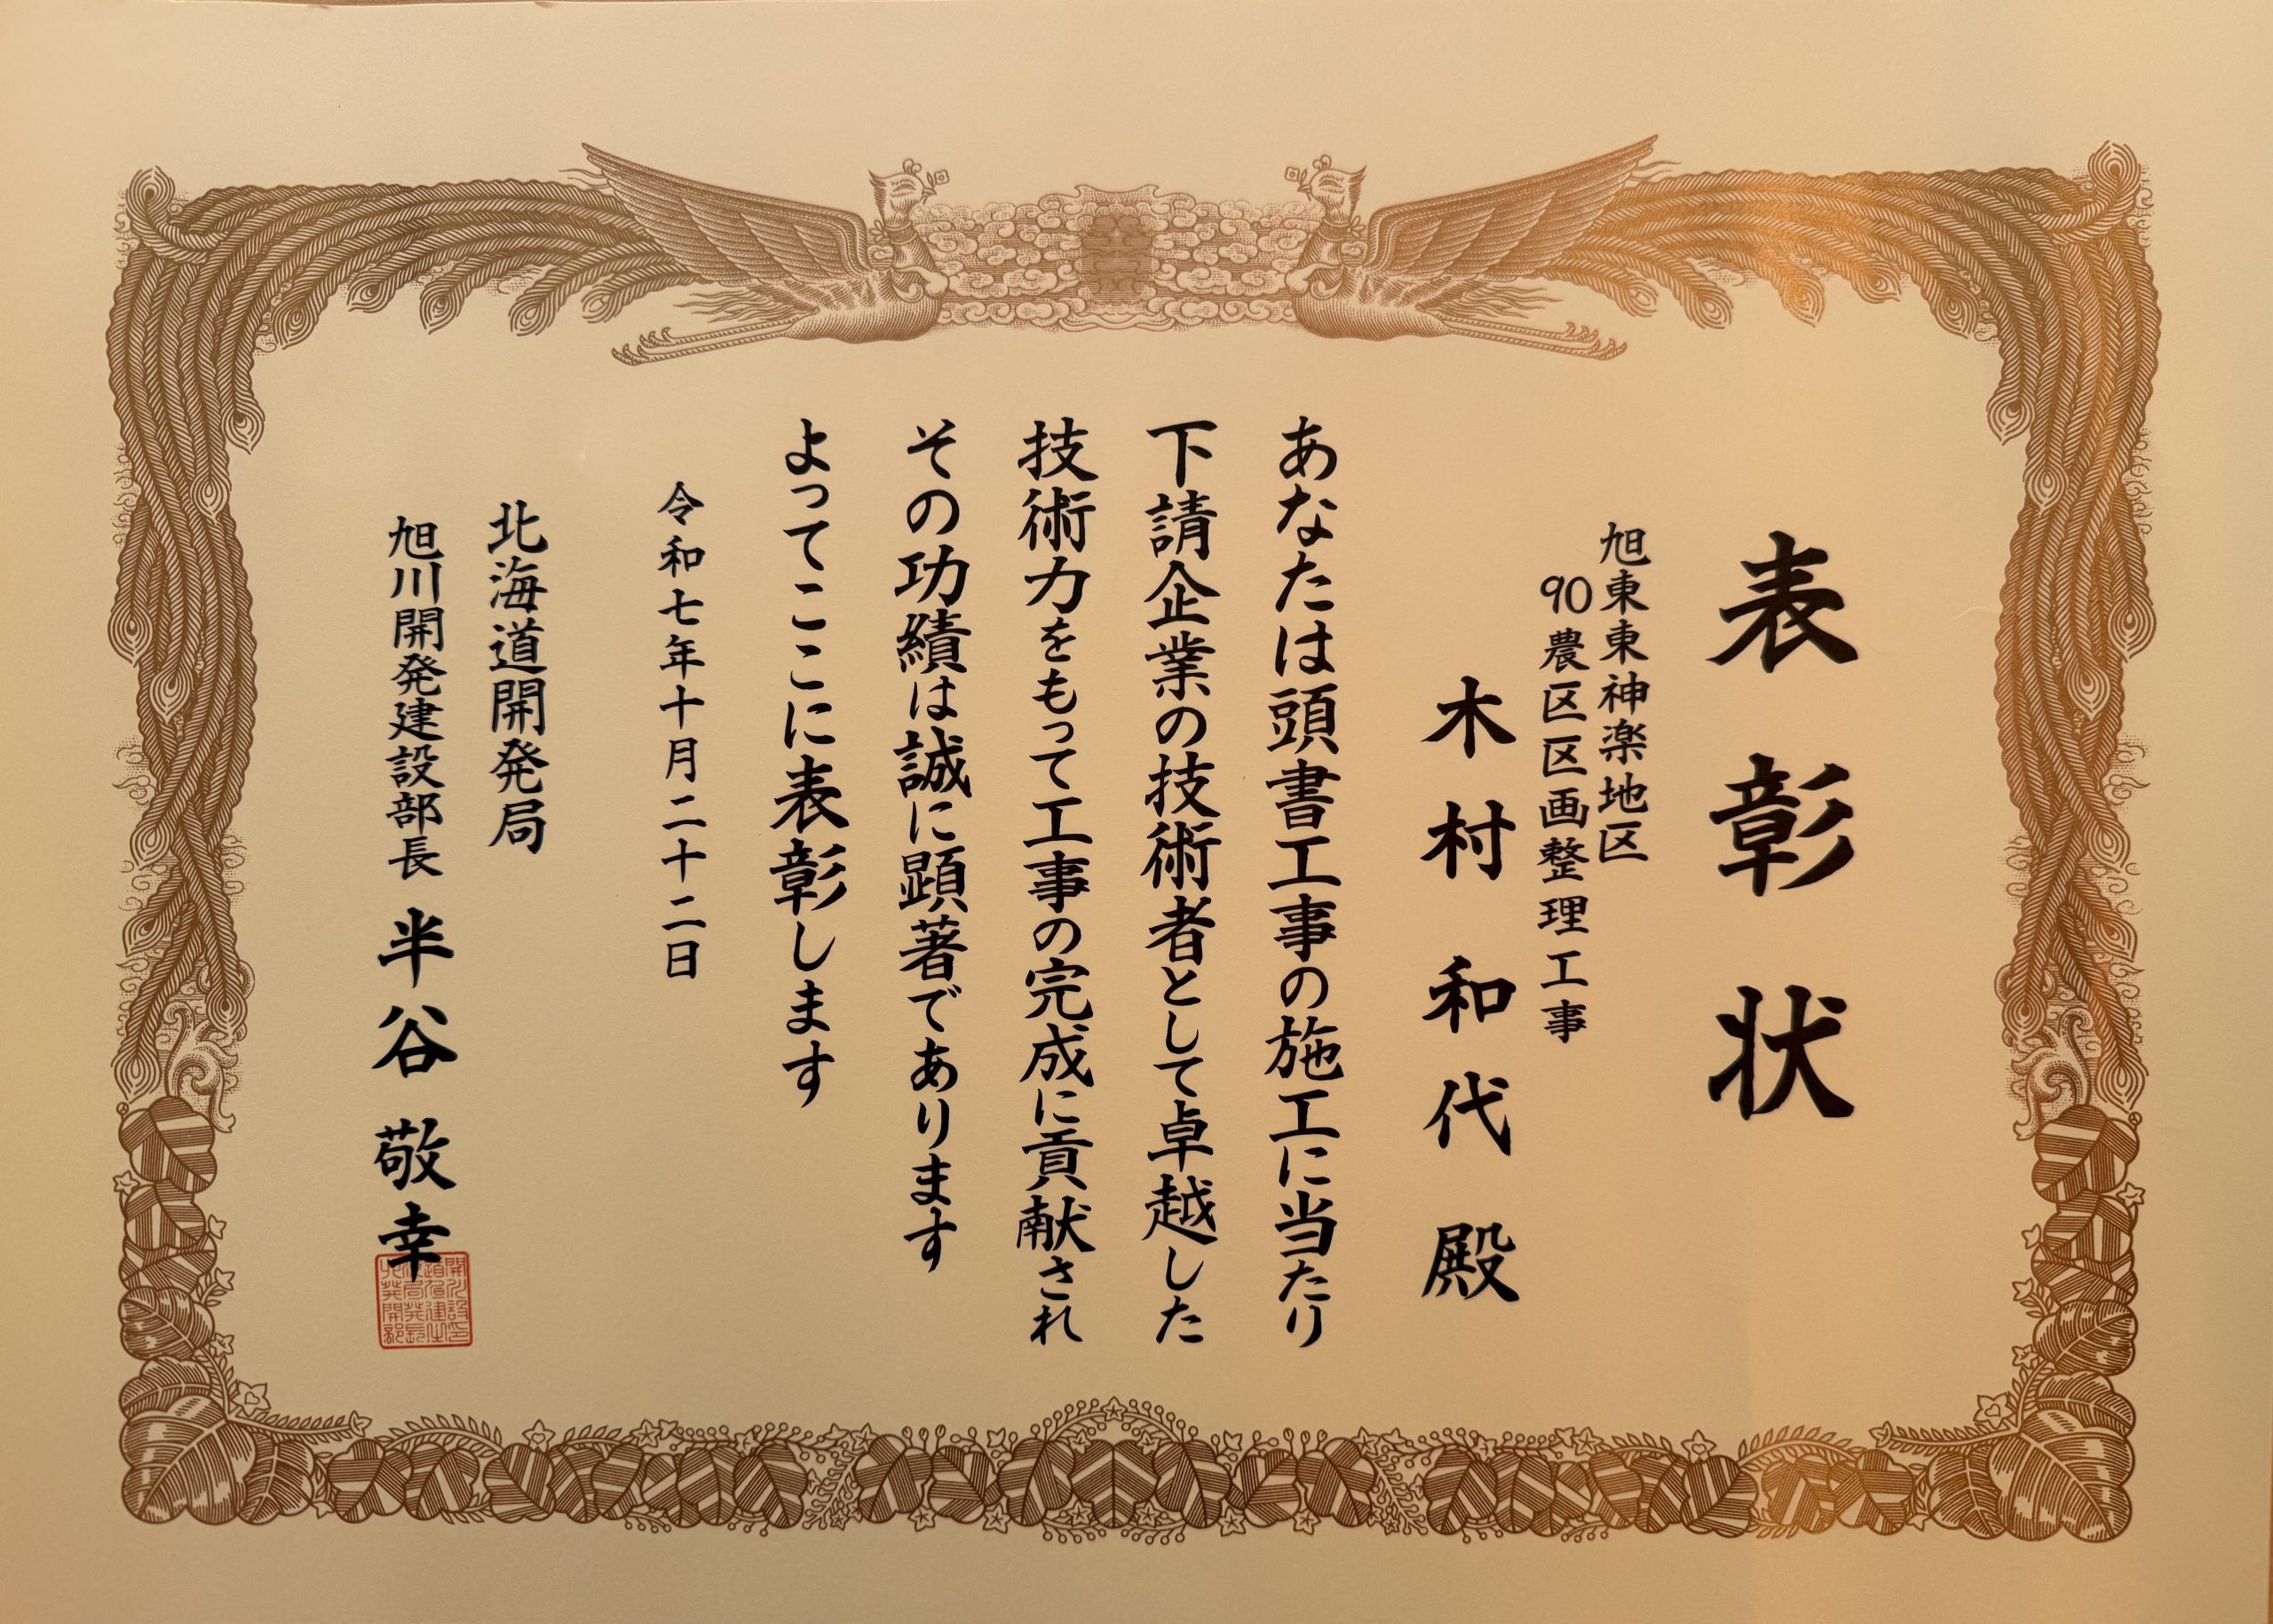 表彰状
旭東東神楽地区
90農区区画整理工事
木村和代殿
あなたは頭書工事の施工に当たり
下請企業の技術者として卓越した
技術力をもって工事の完成に貢献され
その功績は誠に顕著であります
よってここに表彰します
令和七年十月二十二日
北海道開発局
旭川開発建設部長 半谷敬幸